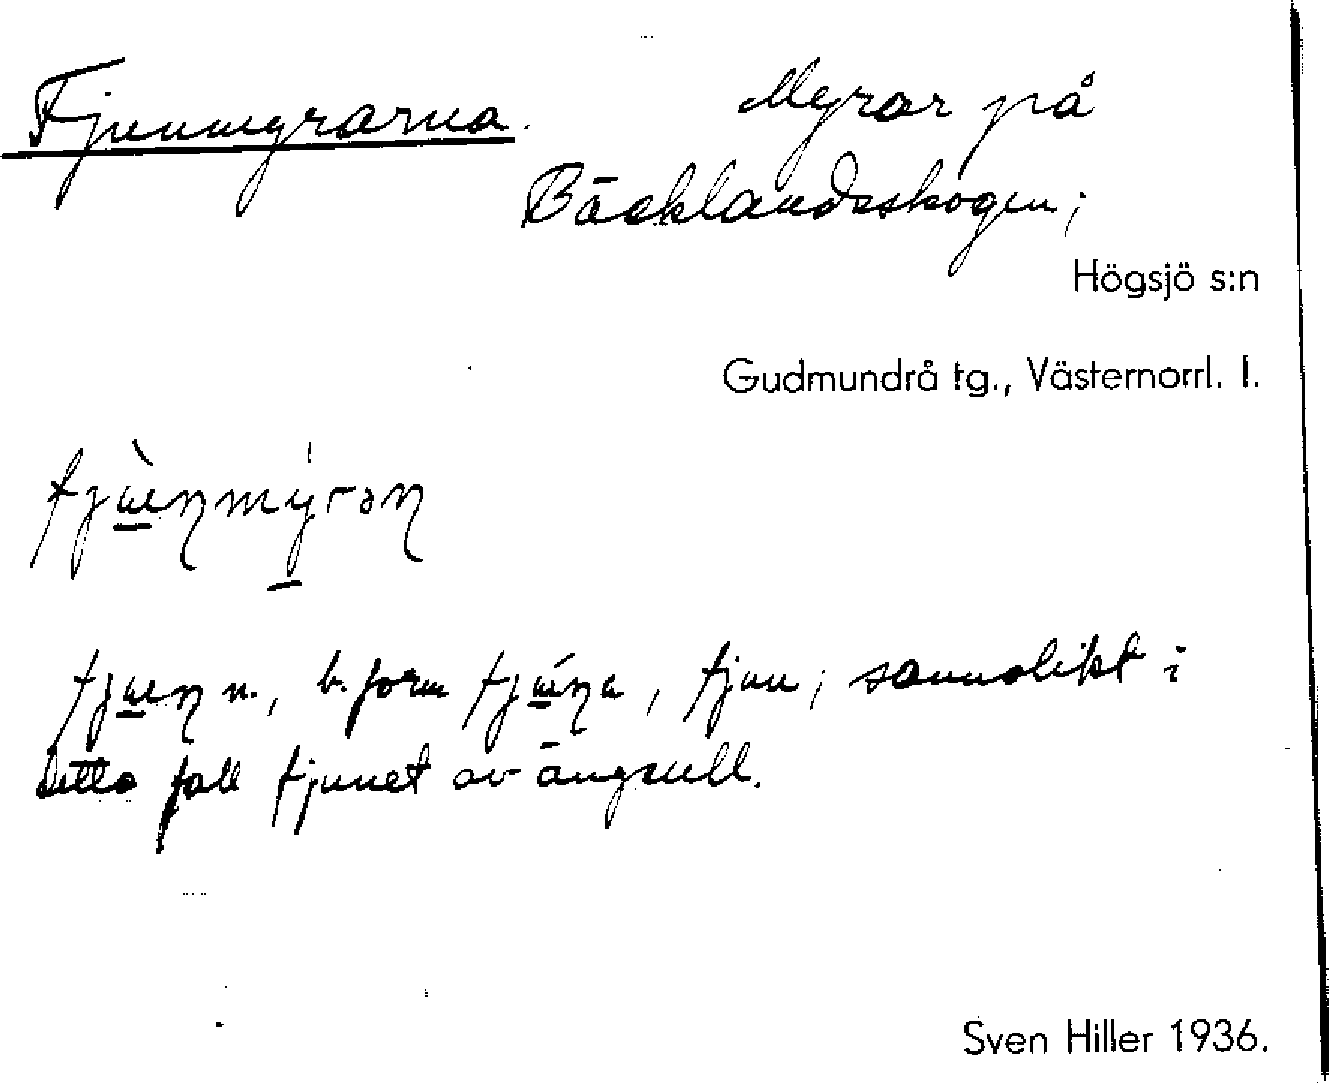 Fjunmyrarna. Myrar på
Bäcklandsskogen;
Högsjö s:n
Gudmundrå tg., Västernorrl. l.
n., b. form , fjun; sannolikt i
detta fall fjunet av ängsull.
Sven Hiller 1936.